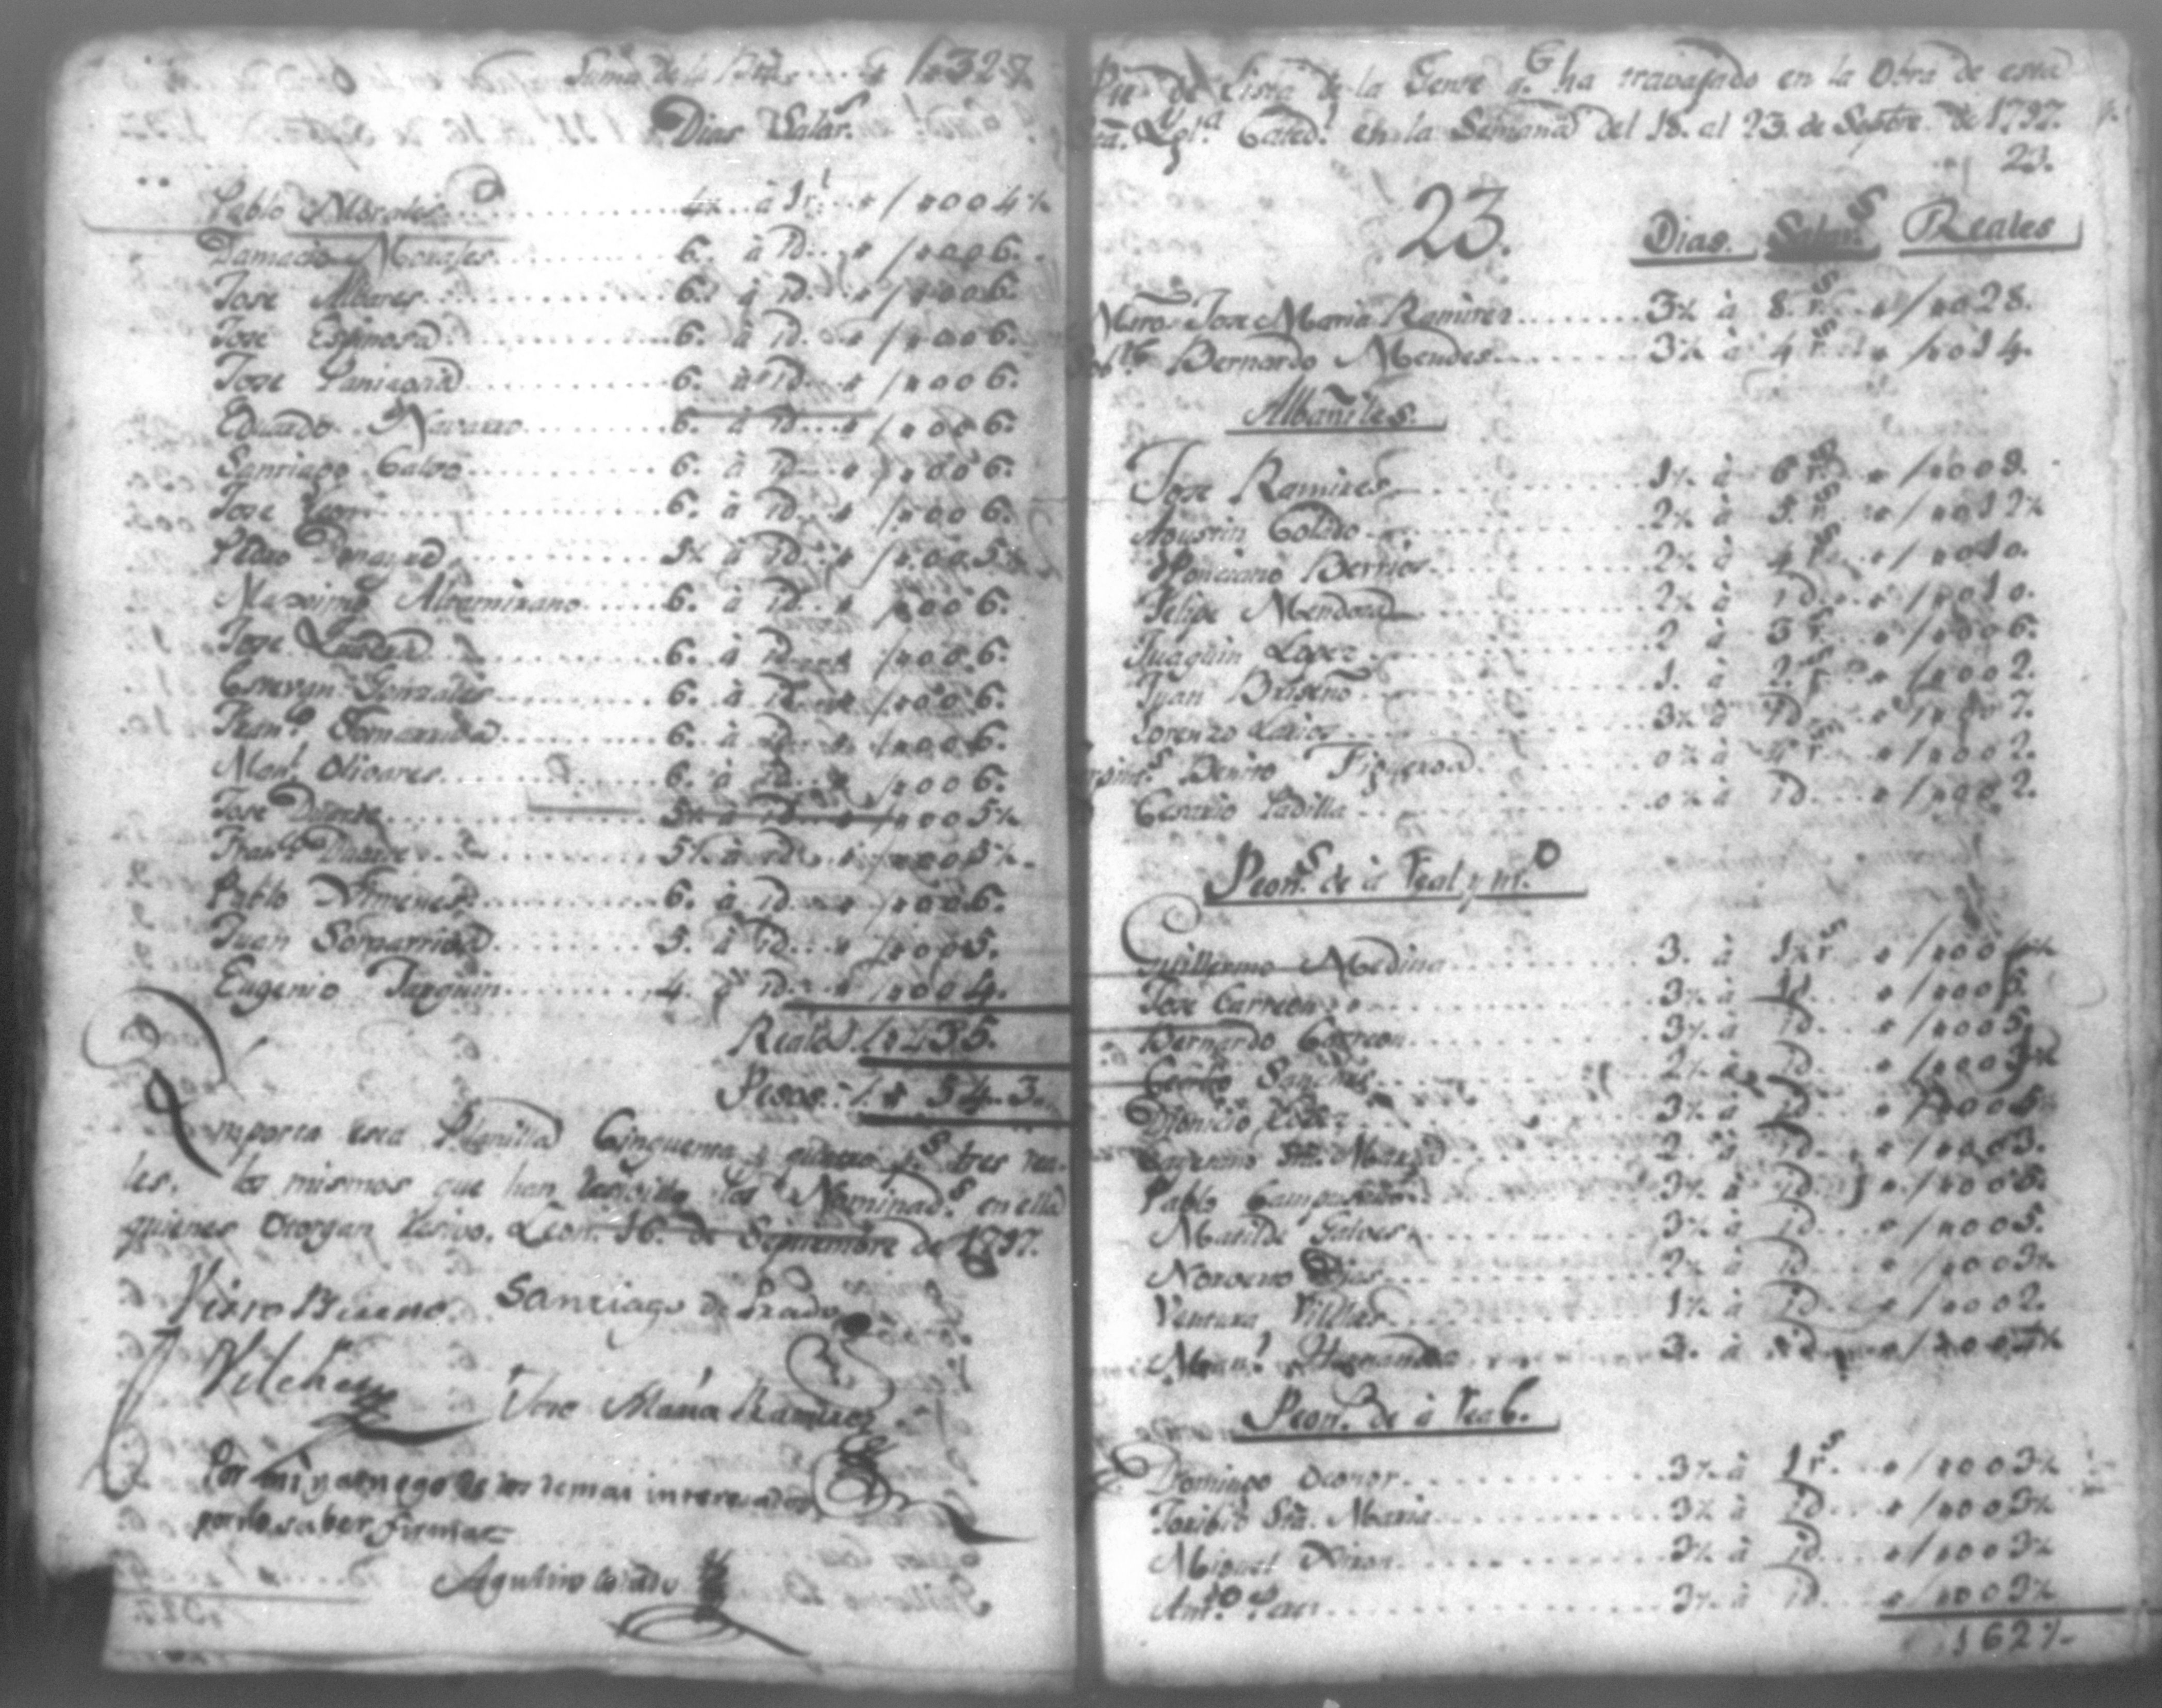 Suma de la Bta. 327.
Dias Salar.s
Pablo Morales 4½ à 1 r.l 0 0 4½
Damacio Morales 6. à id 0 0 6.
Jose Albares 6. à id 0 0 6.
Jose Espinosa 6. à id 0 0 6.
Jose Paniagua 6. à id 0 0 6.
Eduardo Navarro 6. à id 0 0 6.
Santiago Calvo 6. à id 0 0 6.
Jose Leon 6. à id 0 0 6.
Pedro 5½ à id 0 0 5½
Maximo Altamirano 6. à id 0 0 6.
Jose 6. à id 0 0 6.
Estevan Gonzales 6. à id 0 0 6.
Fran.co Somarriba 6. à id 0 0 6.
Man.l Olivares 6. à id 0 0 6.
Jose Duarte 5½ à id 0 0 5½
Fran.co Duarte 5½ à id 0 0 5½
Pablo Ximenes 6. à id 0 0 6.
Juan Somarriba 5. à id 0 0 5.
Eugenio Jarquin 4. à id 0 0 4.
Reales 435.
Pesos 54.3.
Importa esta Planilla Cinquenta y quatro p.s tres rea-
les. los mismos que han resivido los Nominad.s en ella
quienes otorgan resivo. Leon. 16. de Septiembre de 1797.
Santiago de Prado
Vilchez
Jose Maria Ramirez
Por mi y a ruego de los demas interesados
por no saber firmar
Agustino Colado
de Lista de la Gente q.e ha travajado en la Obra de esta
Sta. Ygl.a Cated.l en la Semana del 18. al 23. de Septre. de 1797.
23.
23.
Dias. Salar.s Reales
Mtro. Jose Maria Ramires 3½ à 8. r.s 0 28.
Bernardo Mendes 3½ à 4 r.s 0 14.
Albañiles.
Jose Ramires 1½ à 6 r.s 0 0 9.
Agustin Colado 2½ à 5. r.s 0 12½
Ponciano Berrios 2½ à 4 r.s 0 10.
Felipe Mendoza 2½ à id 0 10.
Juaquin Lopez 2 à 3 r.s 0 0 6.
Juan Briseño 1. à 2. r.s 0 0 2.
Lorenzo Larios 3½ à id 0 0 7.
Benito Figueroa 0½ à 4 r.s 0 0 2.
Cesario Padilla 0½ à id 0 0 2.
Peon.s de à Real y m.o
Guillermo Medina 3. à 1½ r.s 0 0 4½
Jose Carreon 3½ à id 0 0 5.
Bernardo Carreon 3½ à id 0 0 5.
Sanches 2½ à id 0 0 3½
Dionicio Lopez 3½ à id 0 0 5½
Cayetano Sta. Maria 2. à id 0 0 3.
Pablo Campusano 3½ à id 0 0 5.
Matilde Galves 3½ à id 0 0 5.
Norverto Dias 2½ à id 0 0 3½
Ventura 1½ à id 0 0 2.
Man.l Hernandez 3. à id 0 0 4½
Peon.s de à Real.
Domingo Oconor 3½ à 1 r.s 0 0 3½
Toribio Sta. Maria 3½ à id 0 0 3½
Miguel 3½ à id 0 0 3½
Ant.o Peres 3½ à id 0 0 3½
162½